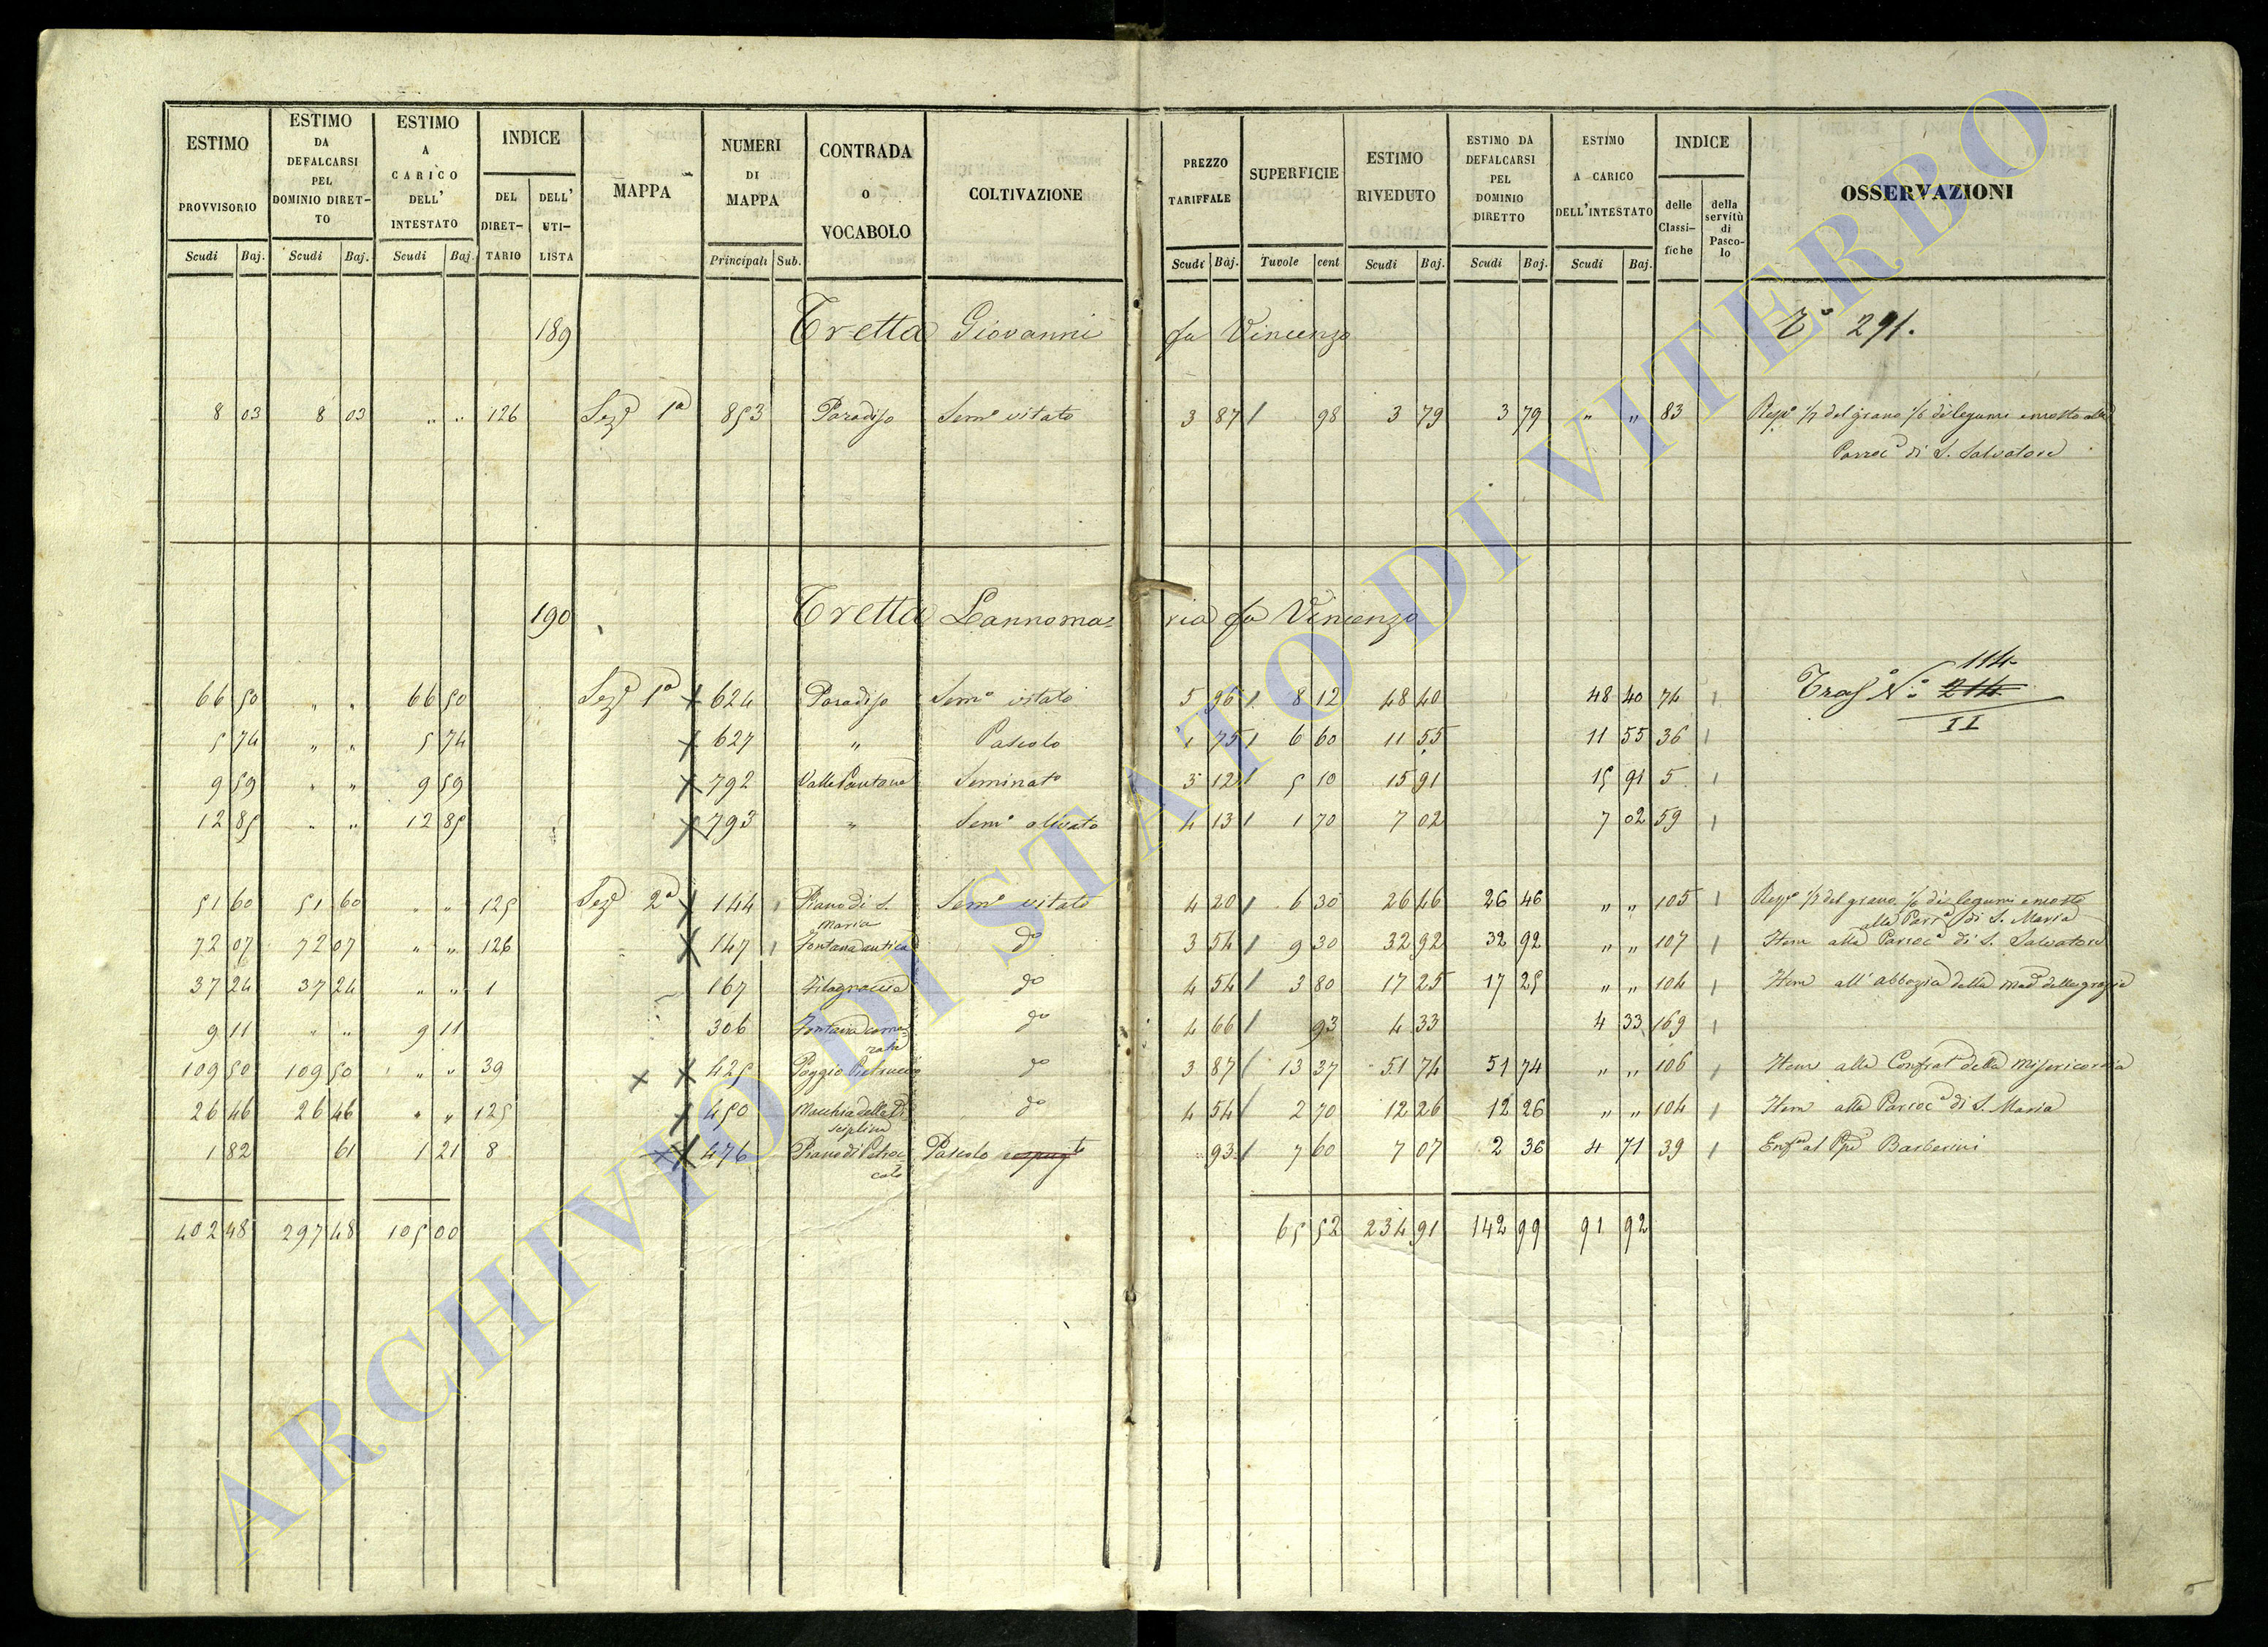 ESTIMO PROVVISORIO Scudi Baj. | ESTIMO DA DEFALCARSI PEL DOMINIO DIRETTO Scudi Baj. | ESTIMO A CARICO DELL' INTESTATO Scudi Baj. | INDICE DEL DIRET-TARIO DELL' UTI-LISTA | MAPPA | NUMERI DI MAPPA Principali Sub. | CONTRADA O VOCABOLO | COLTIVAZIONE | PREZZO TARIFFALE Scudi Baj. | SUPERFICIE Tavole cent | ESTIMO RIVEDUTO Scudi Baj. | ESTIMO DA DEFALCARSI PEL DOMINIO DIRETTO Scudi Baj. | ESTIMO A CARICO DELL'INTESTATO Scudi Baj. | INDICE delle Classi-fiche della servitù di Pasco-lo | OSSERVAZIONI
189 Tretta Giovanni fu Vincenzo 291.
8 03 8 03 " " 126 Sezᵉ 1ª 853 Paradiso Semᵒ vitato 3 87 / 98 3 79 3 79 " " 83 Rispᵉ 1/7 del grano 1/6 di legumi e mosto alla
Parrocª di S. Salvatore
190 Tretta Lannoma= ria fu Vincenzo
114
66 50 " " 66 50 Sezᵉ 1ª X 624 Paradiso Semᵒ vitato 5 96 / 8 12 48 40 48 40 74 1 Trasᵗᵒ Nᵒ 214
II
5 74 " " 5 74 X 627 " Pascolo 1 75 / 6 60 11 55 11 55 36 1
9 59 " " 9 59 X 792 Valle Pantana Seminatᵒ 3 12 / 5 10 15 91 15 91 5 1
12 85 " " 12 85 X 793 " Semᵒ olivato 4 13 / 1 70 7 02 7 02 59 1
51 60 51 60 " " 125 Sezᵉ 2ª X 144 1 Piano di S. Semᵒ vitato 4 20 / 6 30 26 46 26 46 " " 105 1 Rispᵉ del grano di legumi e mosto
Maria alla Parrª di S. Maria
72 07 72 07 " " 126 X 147 1 Fontana antica dᵒ 3 54 / 9 30 32 92 32 92 " " 107 1 Item alla Parrocª di S. Salvatore
37 24 37 24 " " 1 167 Filagnaccia dᵒ 4 54 / 3 80 17 25 17 25 " " 104 1 Item all' abbazia della Madª delle grazie
9 11 " " 9 11 306 Fontana coma= dᵒ 4 66 / 93 4 33 4 33 169 1
rata
109 50 109 50 " " 39 X X 425 Poggio Pietruccio dᵒ 3 87 / 13 37 51 74 51 74 " " 106 1 Item alla Confratᵃ della Misericordia
26 46 26 46 " " 125 X 450 Macchia della Di dᵒ 4 54 / 2 70 12 26 12 26 " " 104 1 Item alla Parrocª di S. Maria
sciplina
1 82 61 1 21 8 X X 476 Piano di Petroc= Pascolo 93 / 7 60 7 07 2 36 4 71 39 1 Enfᵃ al Barberini
colo
402 48 297 48 105 00 65 52 234 91 142 99 91 92
ARCHIVIO DI STATO DI VITERBO